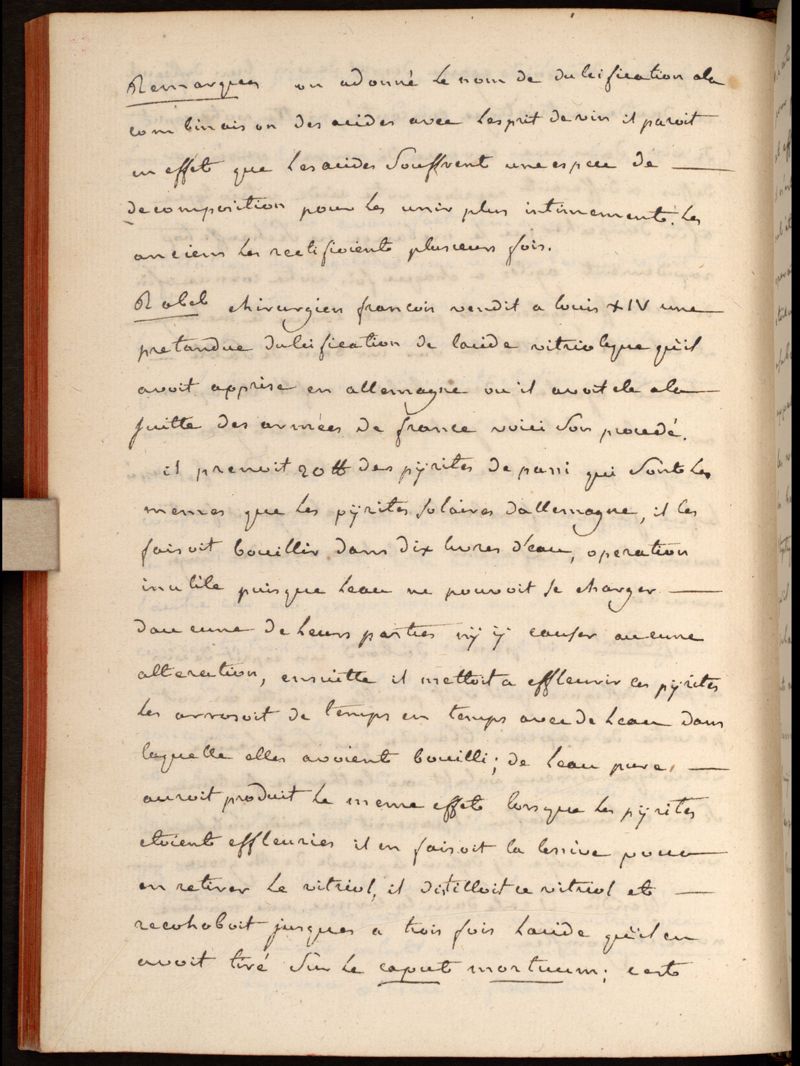 Remarques on adonné le nom de dulcification ala
combinaison des acides avec lesprit devin il paroit
en effet que lesacides souffrent uneespece de
decomposition pour les unir plus intimement. les
anciens les rectifioient plusieurs fois.
Rabel chirurgien francois vendit a louis XIV une
pretandue dulcification de lacide vitriolique qu'il
avoit apprise en allemagne ou il avoit ete ala
suitte des armées de france voici son procedé.
il prenoit 20 ℔ des pÿrites de passi qui sont les
memes que les pÿrites solaires dallemagne, il les
faisoit bouillir dans dix livres d'eau, operation
inutile puisque leau ne pouvoit se charger
daucune de leurs parties nÿ ÿ causer aucune
alteration, ensuitte il mettoit a effleurir ces pÿrites
les arrosoit de temps en temps avec de leau dans
laquelle elles avoient bouilli; de leau pure,
auroit produit le meme effet lorsque les pÿrites
etoient effleuries il en faisoit la lessive pour
en retirer le vitriol, il distilloit ce vitriol et
recohoboit jusques a trois fois lacide qu'il en
avoit tiré sur le caput mortuum; cest